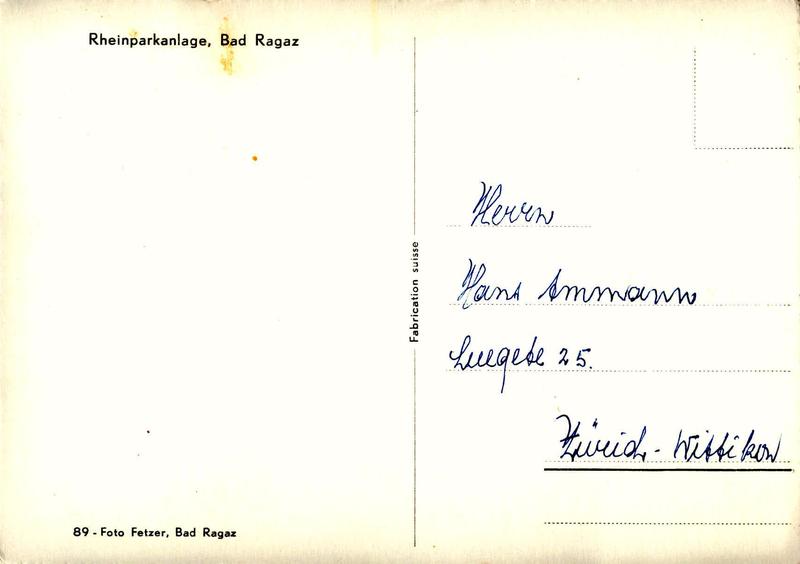 Rheinparkanlage, Bad Ragaz
89 - Foto Fetzer, Bad Ragaz
Fabrication suisse
Herrn
Hans Ammann
Luegete 25.
Zürich - Wittikon